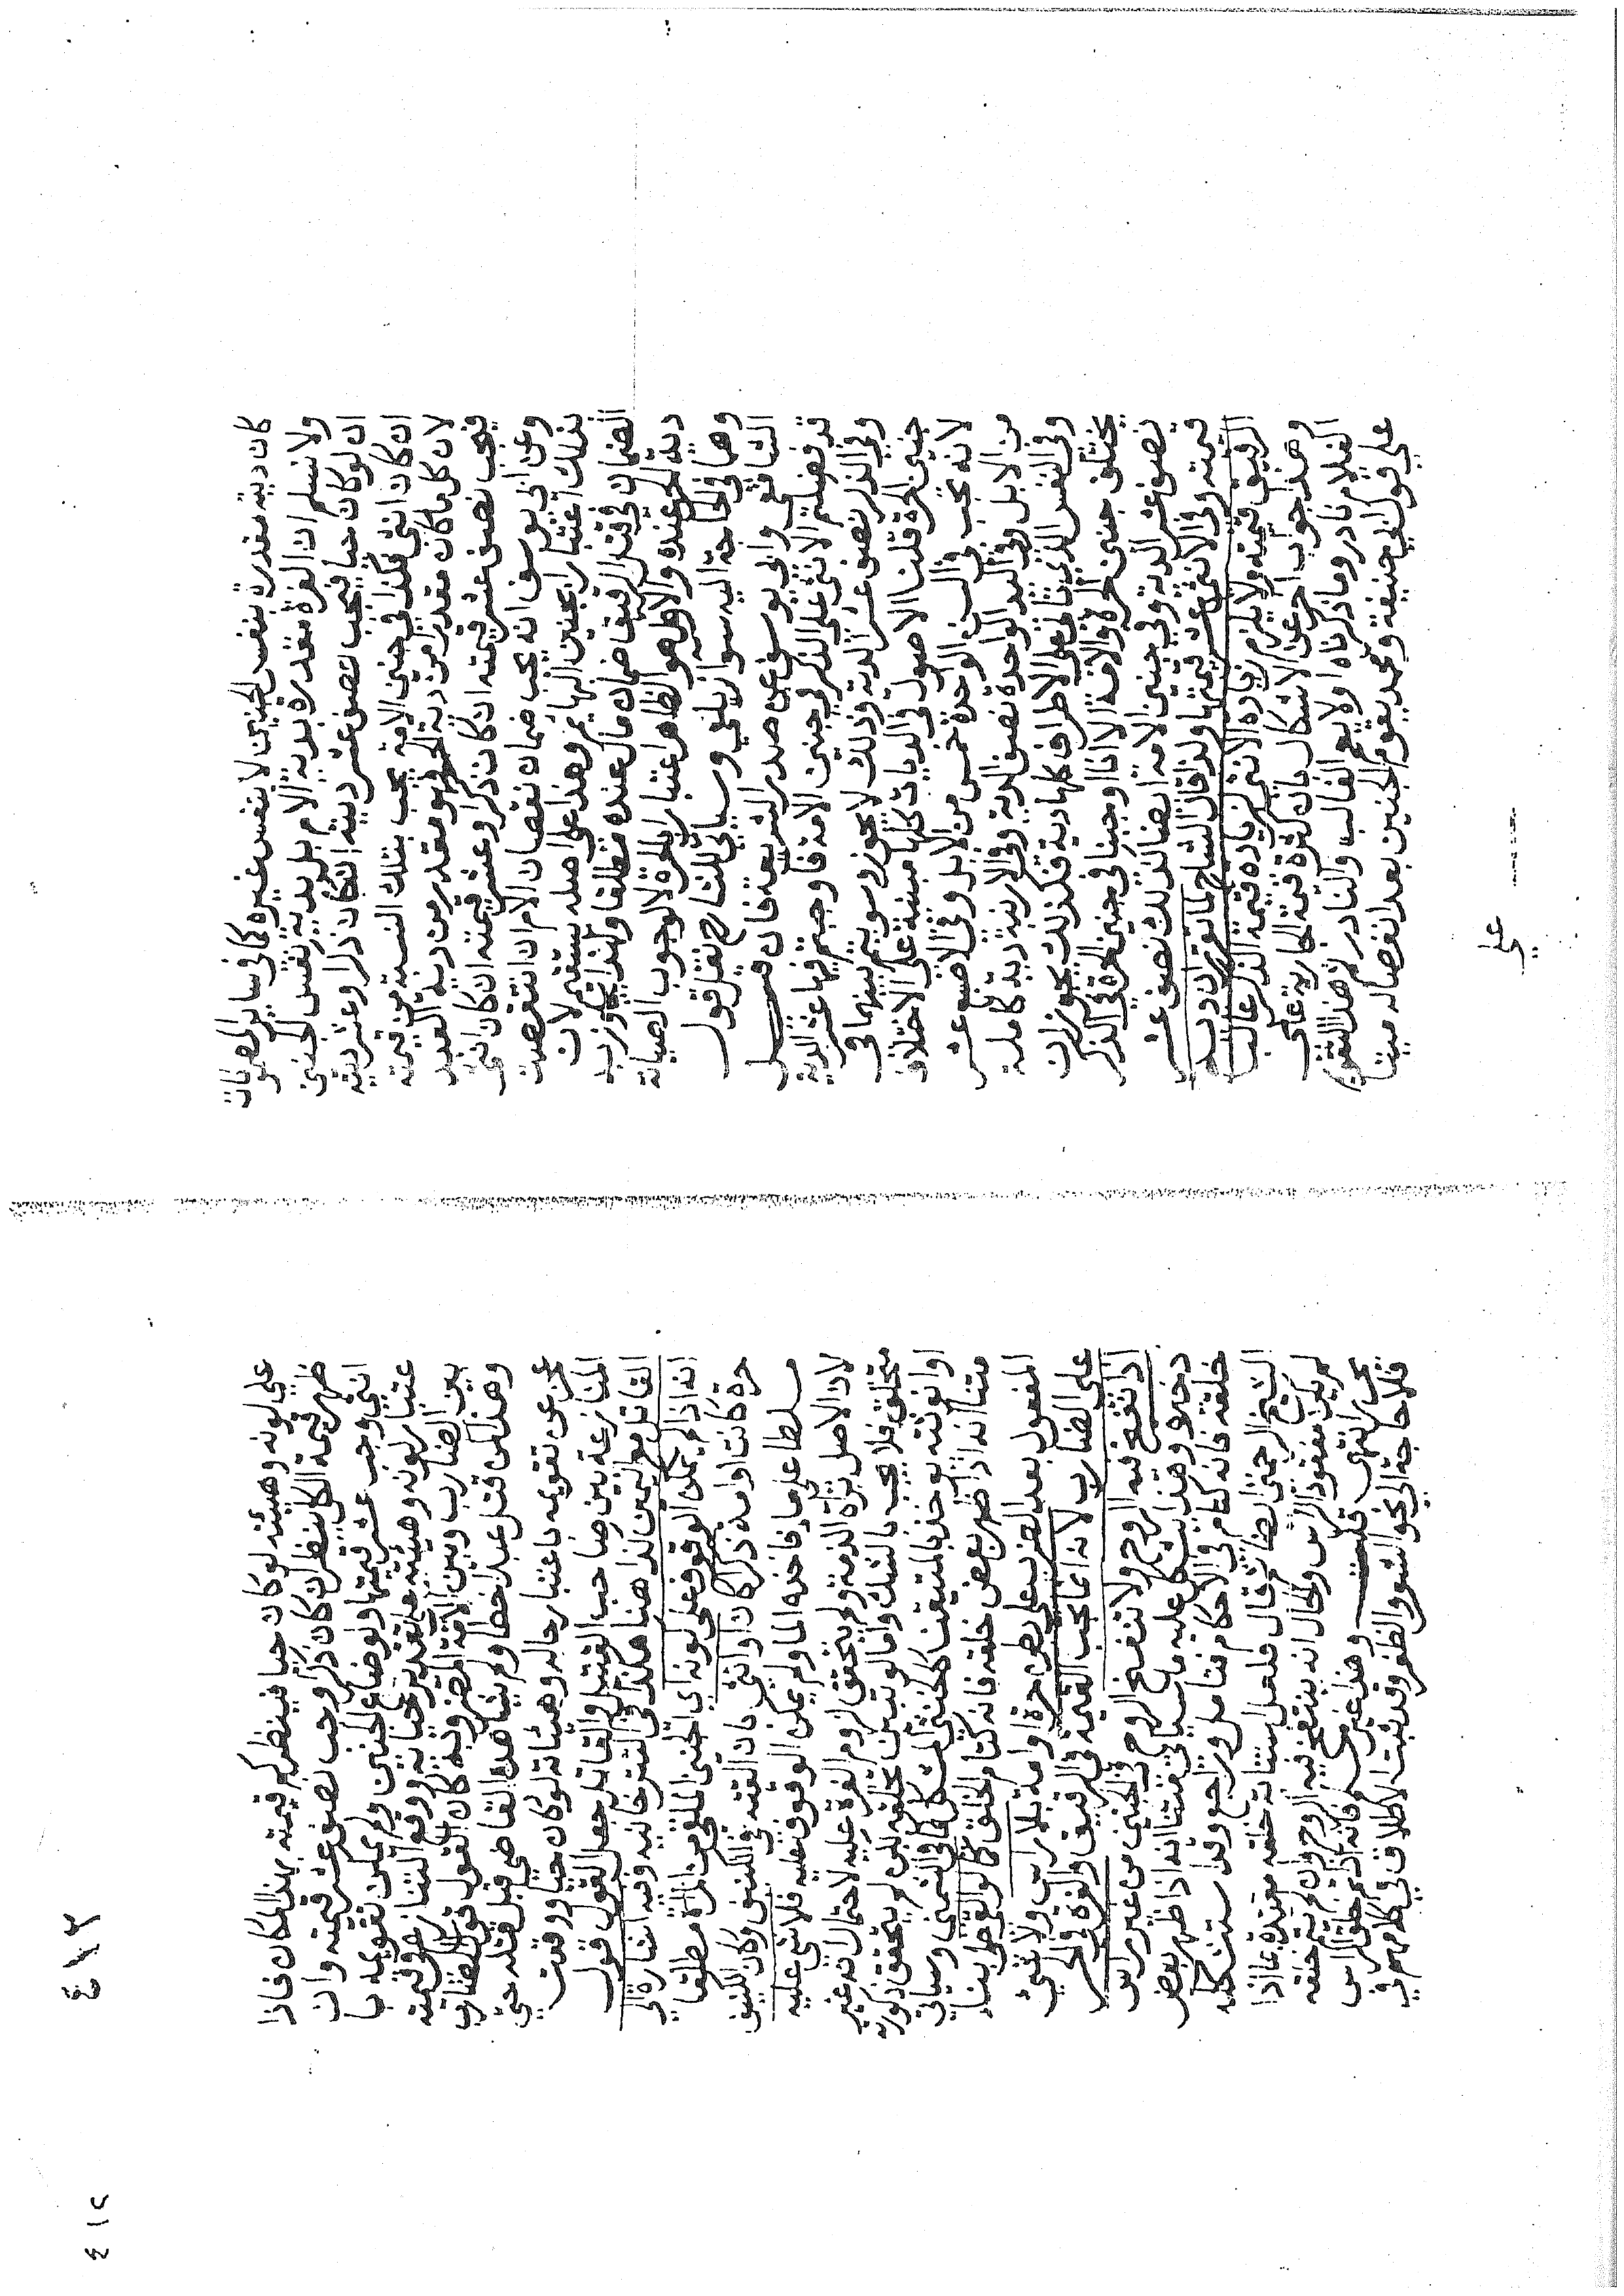 كان دية مقدرة بنفس الجنين لا بنفس غيره كما في سائر المضمونات
ولا نسلم ان الغرة مقدرة بدية الام بل بدية نفس الجنين
ان لو كان حيا فيجب نصف عشر ديته ان كان ذكرا وعشر ديته
ان كان انثى فكذا في جنين الامة يجب بتلك النسبة من قيمته
لان كل ما كان مقدرا من دية الحر فهو مقدر من دية العبد
فيجب نصف عشر قيمته ان كان ذكرا وعشر قيمته ان كان انثى
وعن ابي يوسف انه يجب ضمان نقصان الام ان انتقصت
بذلك اعتبارا بجنين البهائم وهذا على اصله يستقيم لان
الضمان في قتل الرقيق ضمان مال عنده مطلقا ولهذا يجوز
دية الحر عنده والاول هو الظاهر اعتبارا للغرة لا لوجوب الصيانة
وهما في الحاجة اليه سواء زيلعي وسيأتي للشارح نقل قول
الشافعي وابي يوسف عن صدر الشريعة فان قيل
قد فضلتم الانثى على الذكر في جنين الامة فاوجبتم فيها عشر الدية
وفي الذكر نصف عشر الدية وذلك لا يجوز وسويتم بينهما في
جنين الحرة قلنا الاصول في الديات كلها مبنية على الاختلاف
لانه يجب في السن الواحدة خمس من الابل وفي الاصبع عشر
من الابل وفي اليد الواحدة نصف الدية وفي الارنبة دية كاملة
وفي النفس الذي تاتي على الاطراف كلها دية فكذلك يجوز ان
يختلف جنين الحرة والامة الا انا اوجبنا في جنين الحرة في الذكر
نصف عشر الدية وفي جنين الامة ايضا كذلك نصف عشر
قيمته وفي الانثى عشر قيمتها ولذا قال الشارح لما تقرر ان دية
الرقيق قيمته ولا يلزم زيادة الانثى لزيادة قيمة الذكر غالبا
وهذا جواب اخر عن الاشكال بان كثرة قيمة الجارية على
الغلام نادر وما ذكرناه اولا يعم الغالب والنادر هذا التقويم
على قول ابي حنيفة ومحمد يقوم الجنين بعد انفصاله ميتا
على
على لونه وهيئته لو كان حيا فينظر كم قيمته بهذا المكان فاذا
ظهر قيمته ينظر ان كان ذكرا وجب نصف عشر قيمته وان
انثى وجب عشر قيمتها ولو ضاع الجنين ولم يمكن تقويمه با
عتبار لونه وهيئته على تقدير حياته ووقع التنازع في قيمته
بين الضارب وبين الامة المضروبة كان القول قول الضارب
وهذا كمن قتل عبدا خطأ ولم يشاهد القاضي قبل قتله حتى
عجز عن تقويمه باعتبار حاله وهيئاته لو كان حيا ووقعت
المنازعة بين صاحب القتيل والقاتل جعل القول قول
القاتل مع اليمين كذا ههنا هكذا في التترخانيه وفيه اشارة الى
انه اذا لم يمكن الوقوف على لونه اي الجنين الملقى من المراة مطلقا
حرة كانت او امة ذكرا كان او انثى بان القته في الكنيف وكان الكنيف
مسلطا على ماء فاخذه الماء ولم يمكن الوقوف عليه فلا شي عليه
لان الاصل براة الذمة ولم يتحقق لزوم الغرة عليه لاحتمال انه غير
متخلق فلا يجب بالشك واما لو تبين تخلقه لكن لم يتحقق ذكورته
او انوثته يوخذ بالمتيقن كخنثى المشكل كما في الشمني وسياتي
متنا انه اذا ظهر بعض خلقه فانه كتام الخلق كما لو القي بناء
المفعول بعد الضرب على بطن حرة او امة بلا راس ولا شيء
على الضارب لانه انما تجب القيمة في الرقيق والغرة في الحر
اذا نفخ فيه الروح ولا تنفخ الروح في الجنين من غير راس
ذخيرة وهذا يشكل عليه ما سياتي متنا انه اذا ظهر بعض
خلقه فانه كتام في الاحكام فتامل وراجع وقد استشكله
الشيخ الرحمتي ايضا ثم قال فلعل خلقه مقيدة بما اذا
لم يكن مفقود الراس والحال انه ينتفخ فيه الروح وان لم يتم خلقه
محرر انتهى قلت وهذا غير محرر فانه اذا تم خلق الراس
فلا حاجة الى نحو الشعر والظفر وقد ثبت الاطلاق في كلامهم في
٤١٢
٤١٢